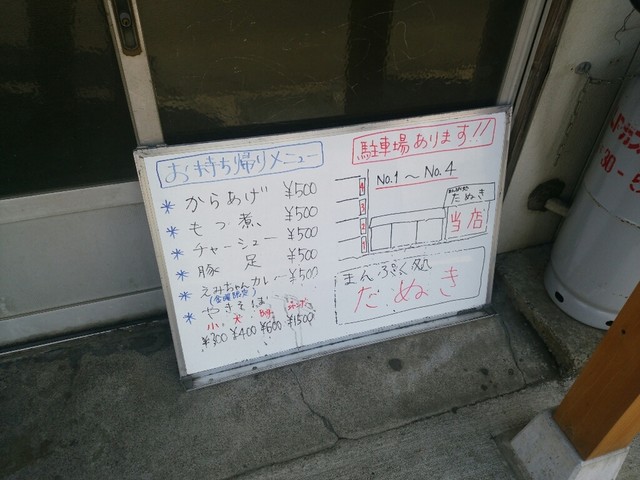 お持ち帰りメニュー
* からあげ ¥500
* もつ煮 ¥500
* チャーシュー ¥500
* 豚足 ¥500
* えみちゃんカレー ¥500
(金曜限定)
* やきそば
小 大
¥300 ¥400 ¥600 ¥1500
駐車場あります!!
No.1 ~ No.4
4
3
2
1
たぬき
当店
まんぷく処
たぬき